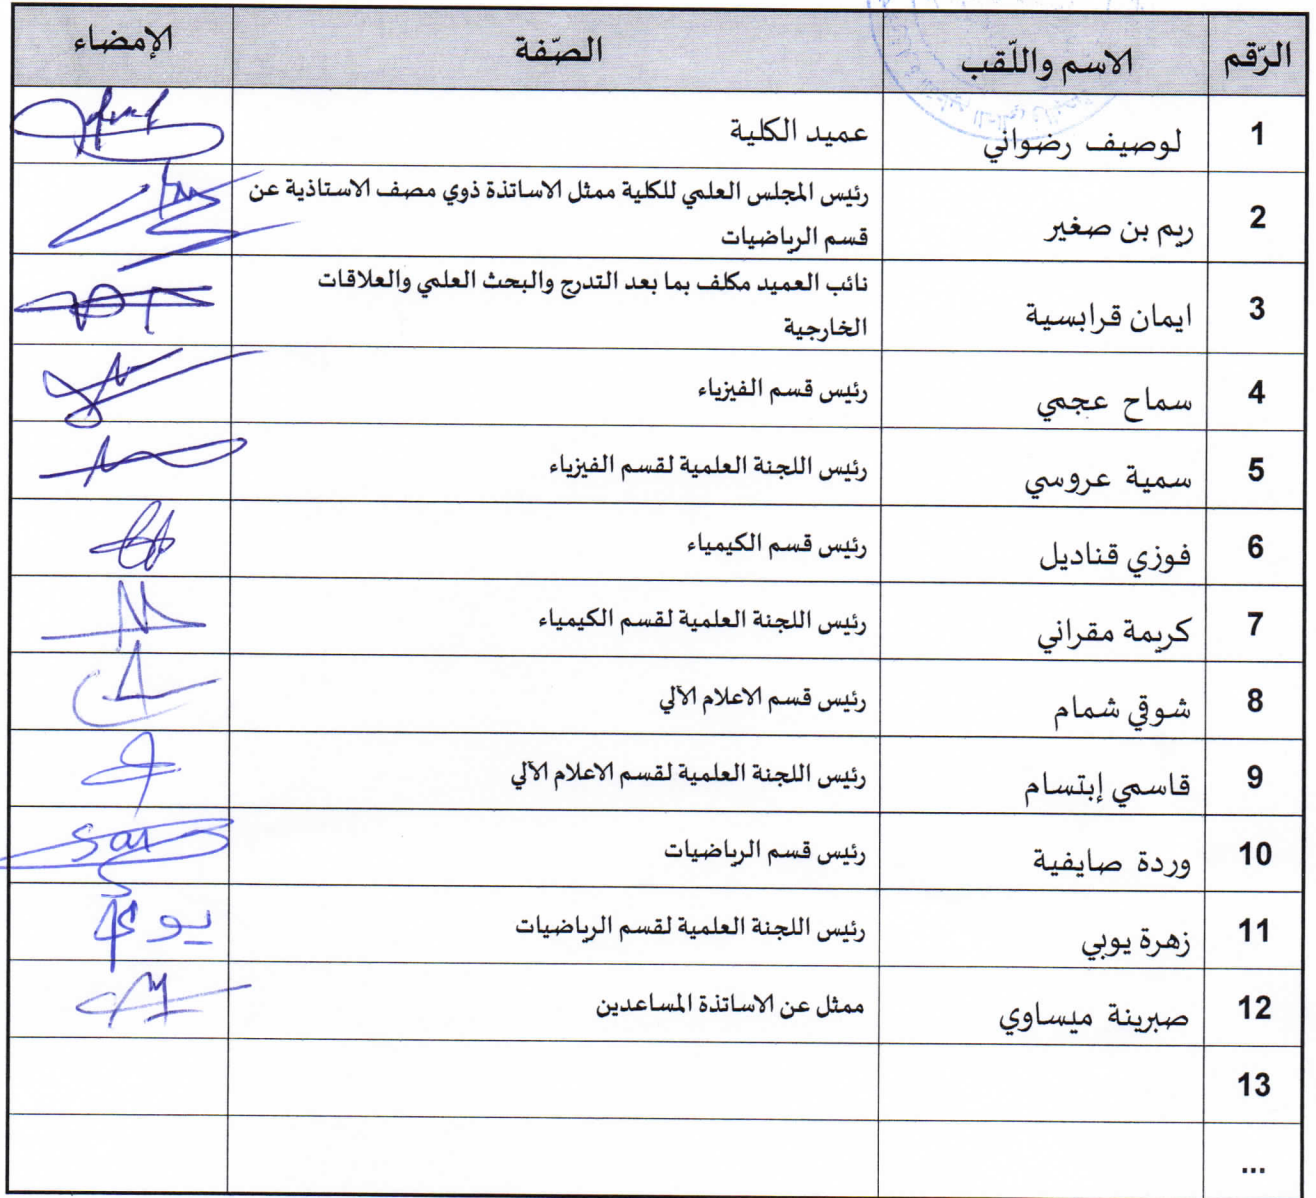 الرّقم الاسم واللّقب الصّفة الإمضاء
1 لوصيف رضواني عميد الكلية
2 ريم بن صغير رئيس المجلس العلمي للكلية ممثل الاساتذة ذوي مصف الاستاذية عن
قسم الرياضيات
3 ايمان قرابسية نائب العميد مكلف بما بعد التدرج والبحث العلمي والعلاقات
الخارجية
4 سماح عجمي رئيس قسم الفيزياء
5 سمية عروسي رئيس اللجنة العلمية لقسم الفيزياء
6 فوزي قناديل رئيس قسم الكيمياء
7 كريمة مقراني رئيس اللجنة العلمية لقسم الكيمياء
8 شوقي شمام رئيس قسم الاعلام الآلي
9 قاسمي إبتسام رئيس اللجنة العلمية لقسم الاعلام الآلي
10 وردة صايفية رئيس قسم الرياضيات
11 زهرة يوبي رئيس اللجنة العلمية لقسم الرياضيات
12 صبرينة ميساوي ممثل عن الاساتذة المساعدين
13
...